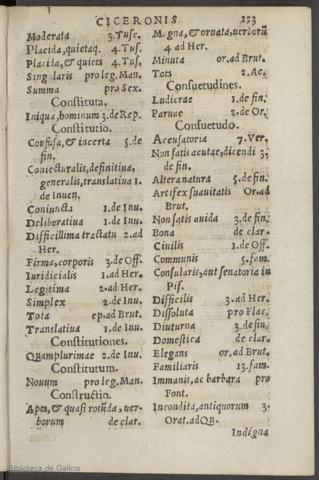 CICERONIS 123
Moderata 3.Tusc.
Placida, quietaq. 4.Tus.
Placida, & quieta 4.Tus.
Singularis pro leg. Man.
Summa pro Sex.
Constituta.
Iniqua, hominum 3.de Rep.
Constitutio.
Confusa, & incerta 5.de
fin.
Coniecturalis, definitiua,
generalis, translatiua 1.
de inuen.
Coniuncta 1.de Inu.
Deliberatiua 1.de Inu.
Difficillima tractatu 2.ad
Her.
Firma, corporis 3.de Off.
Iuridicialis 1.ad Her.
Legitima 2.ad Her.
Simplex 2.de Inu.
Tota ep.ad Brut.
Translatiua 1.de Inu.
Constitutiones.
Quamplurimae 2.de Inu.
Constitutum.
Nouum pro leg. Man.
Constructio.
Apta, & quasi rotūda, uer-
borum de clar.
Magna, & ornata, uerborū
4 ad Her.
Minuta or.ad Brut.
Tota 2.Ac.
Consuetudines.
Ludicrae 1.de fin.
Paruae 2.de Or.
Consuetudo.
Accusatoria 7.Ver.
Non satis acutae, dicendi 3.
de fin.
Altera natura 5.de fin.
Artifex suauitatis Or.ad
Brut.
Non satis auida 3.de fin.
Bona de clar.
Ciuilis 1.de Off.
Communis 5.fam.
Consularis, aut senatoria in
Pis.
Difficilis 3.ad Her.
Dissoluta pro Flac.
Diuturna 3.de fin.
Domestica de clar.
Elegans or.ad Brut.
Familiaris 13.fam.
Immanis, ac barbara pro
Font.
Incondita, antiquorum 3.
Orat. ad Qu.
Indigna
Biblioteca de Galicia